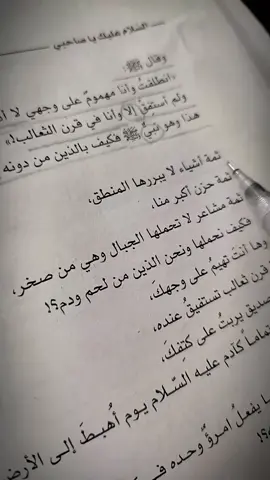 السلام عليك يا صاحبي
وقال ﷺ:
«انطلقتُ وأنا مهمومٌ على وجهي لا أ
ولم أستفق إلا وأنا في قرن الثعالب!»
هذا وهو نبيٌّ ﷺ فكيف بالذين من دونه
ثمة أشياء لا يبررها المنطق،
ثمة حزن أكبر منا،
ثمة مشاعر لا تحملها الجبال وهي من صخر،
فكيف نحملها ونحن الذين من لحم ودم؟!
وها أنت تهيمُ على وجهكَ،
قرن ثعالب تستفيقُ عنده،
صديق يربتُ على كتِفِكَ،
تماماً كآدم عليه السّلام يوم أُهبطَ إلى الأرض
ا يفعلُ امرؤٌ وحده في